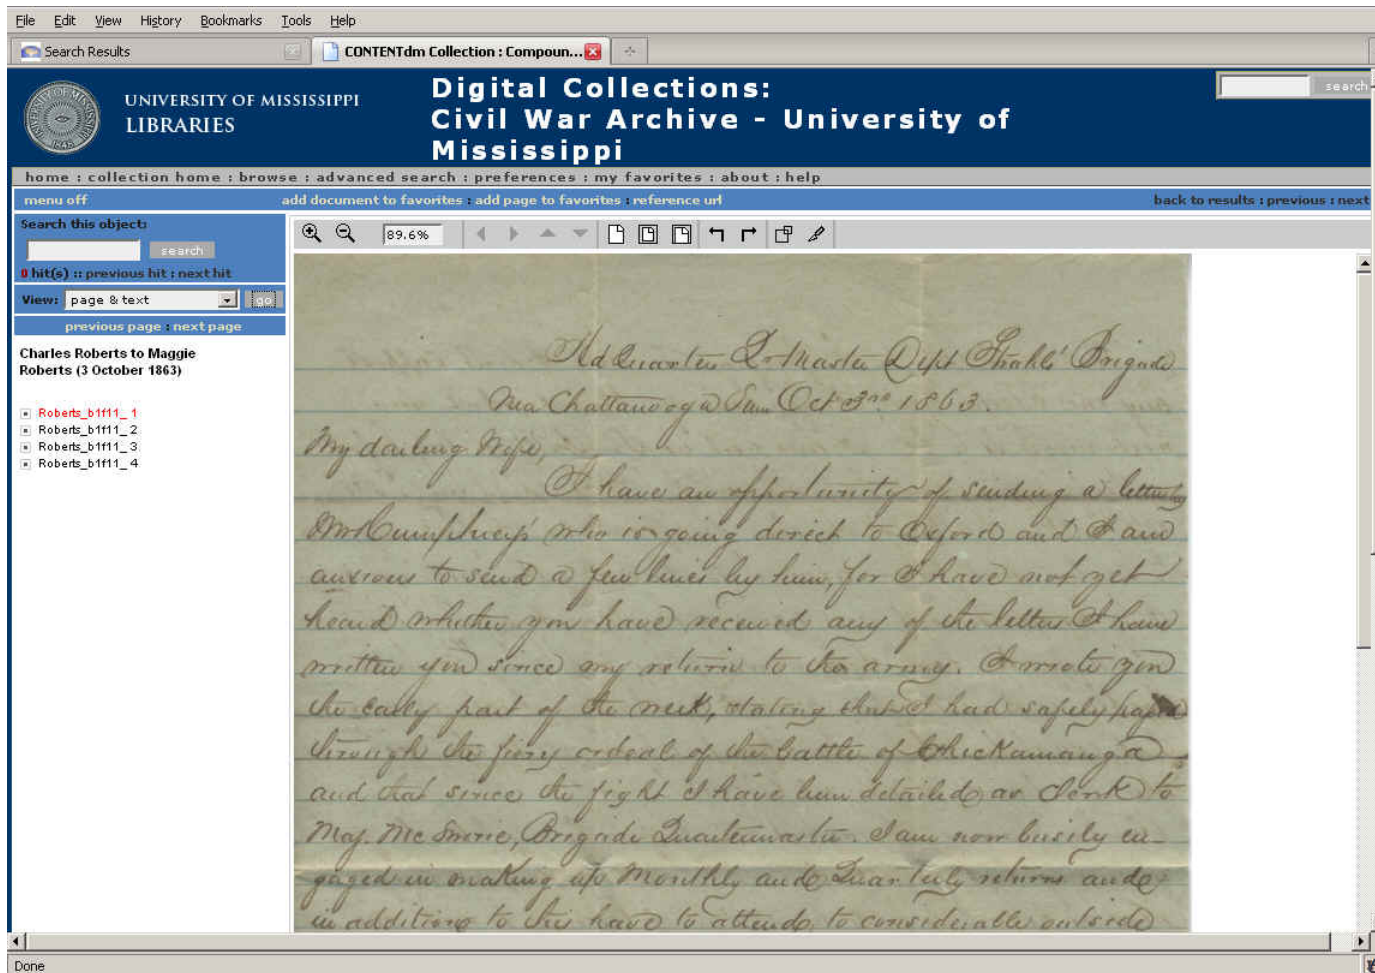 File Edit View History Bookmarks Tools Help
Search Results
CONTENTdm Collection : Compoun...
UNIVERSITY OF MISSISSIPPI
LIBRARIES
Digital Collections:
Civil War Archive - University of
Mississippi
search
home : collection home : browse : advanced search : preferences : my favorites : about : help
menu off
add document to favorites : add page to favorites : reference url
back to results : previous : next
Search this object:
search
0 hit(s) :: previous hit : next hit
View: page & text go
previous page : next page
89.6%
Charles Roberts to Maggie
Roberts (3 October 1863)
Roberts_b1f11_ 1
Roberts_b1f11_ 2
Roberts_b1f11_ 3
Roberts_b1f11_ 4
Hd Quarters Qr Master Dept Strahls' Brigade
Near Chattanooga Tenn Oct 3rd 1863.
My darling Wife,
I have an opportunity of sending a letter by
Mr Humphreys who is going direct to Oxford and I am
anxious to send a few lines by him, for I have not yet
heard whether you have received any of the letters I have
written you since my return to the army. I wrote you
the early part of the week, stating that I had safely passed
through the fiery ordeal of the battle of Chickamauga
and that since the fight I have been detailed as Clerk to
Maj. Mc , Brigade Quartermaster. I am now busily en-
gaged in making up Monthly and Quarterly returns and
in addition to this have to attend to considerable outside
Done